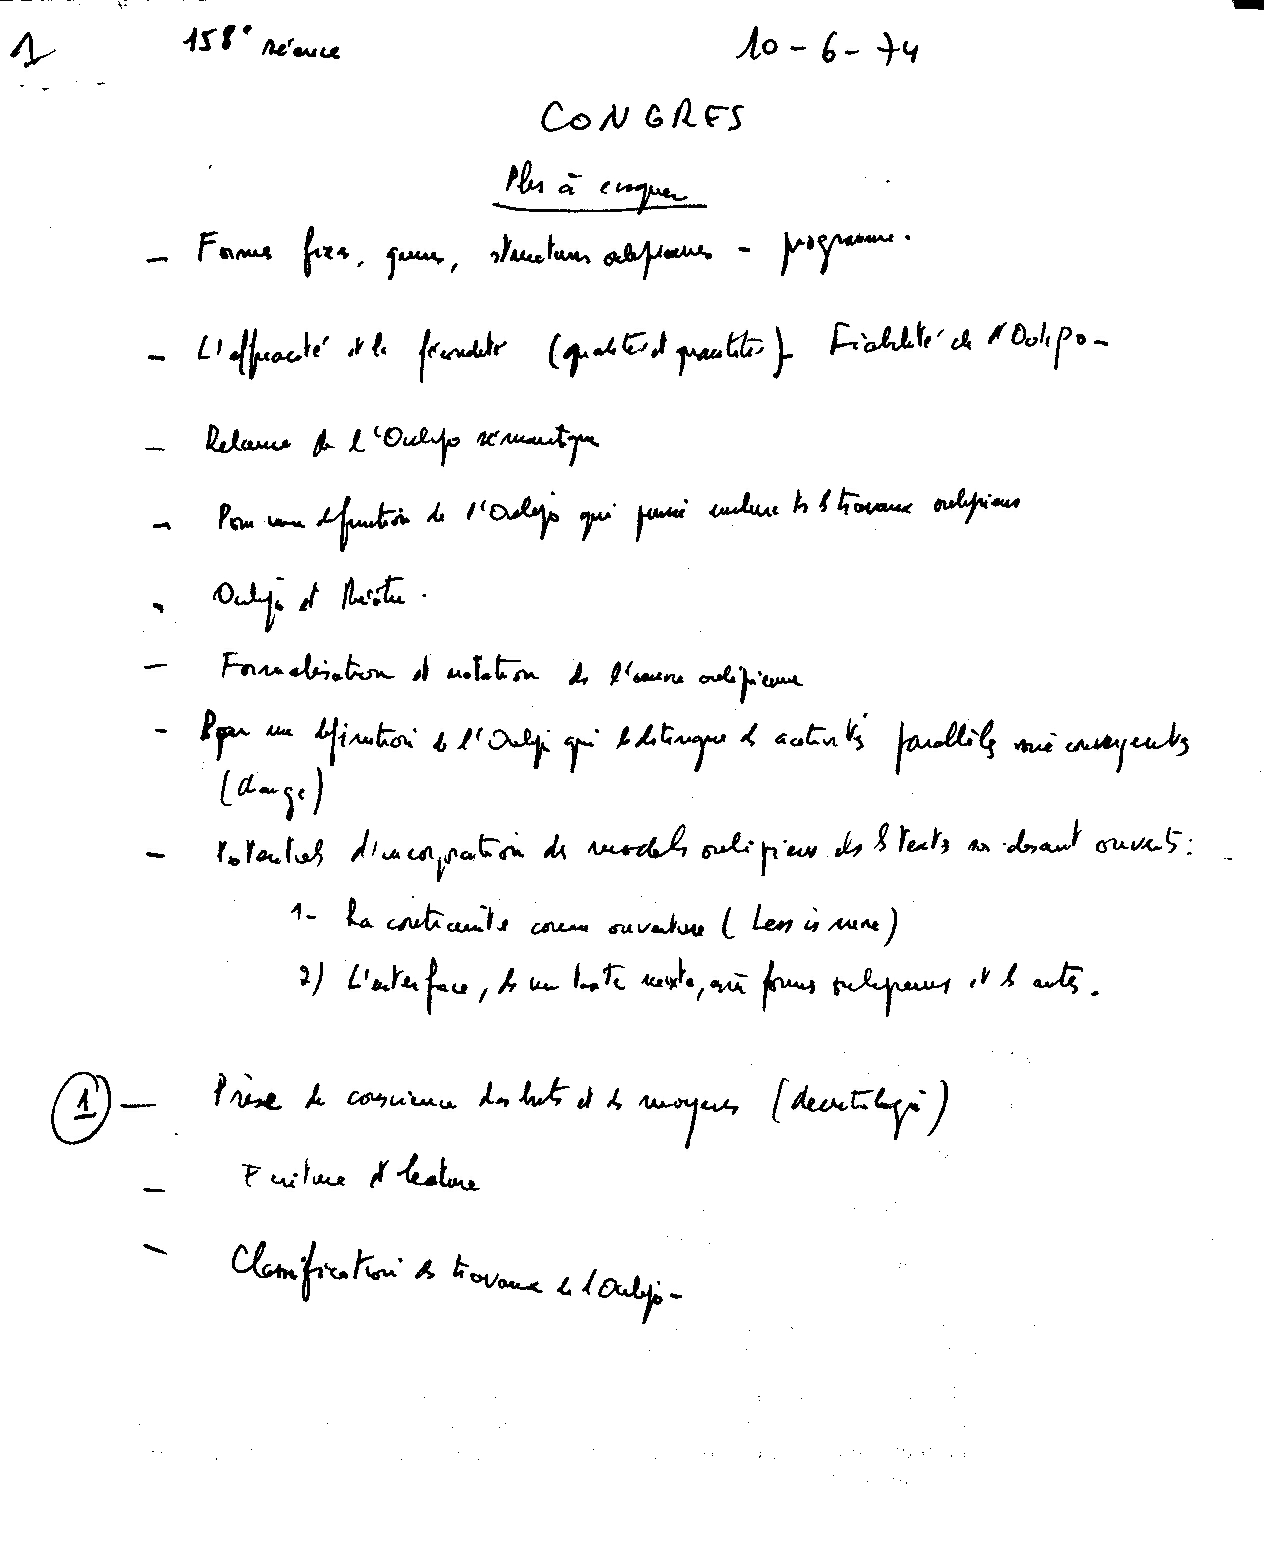 1 158° séance 10-6-74
CONGRES
à
– Formes fixes, genres, structures oulipiennes – programme.
– L'efficacité et la fécondité (qualités et quantités) – Fiabilité de l'Oulipo –
– Relance de l'Oulipo sémantique
– Pour une définition de l'Oulipo qui puisse inclure ts ls travaux oulipiens
– Oulipo et théâtre.
– Formalisation et notation de l'œuvre oulipienne
– une définition de l'Oulipo qui le distingue ds activités parallèles
(change)
– d'incorporation de modèles oulipiens ds ls textes soi-disant ouverts :
1- La contrainte comme ouverture (Less is more)
2) L'interface, ds un texte mixte, formes oulipiennes et ls autres.
1 – Prise de conscience des buts et ds moyens (déontologie)
– Ecriture et lecture
– Classification ds travaux de l'Oulipo –